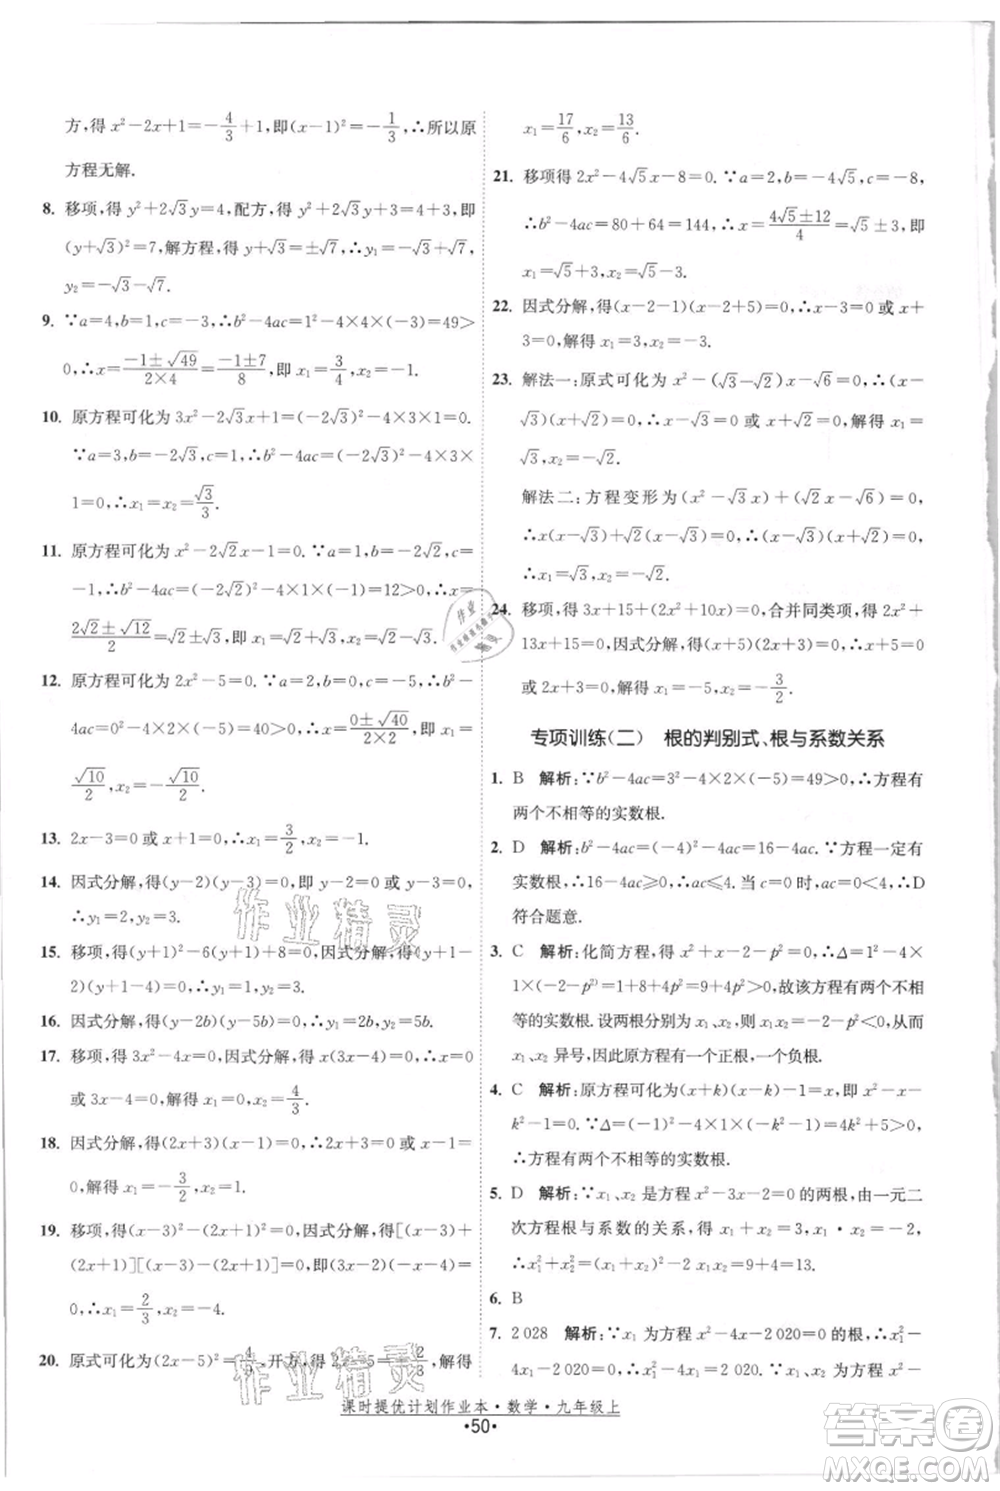 方,得 x²-2x+1=-4/3+1,即(x-1)²=-1/3,∴所以原
方程无解.
8. 移项,得 y²+2√3y=4,配方,得 y²+2√3y+3=4+3,即
(y+√3)²=7,解方程,得 y+√3=±√7,∴y₁=-√3+√7,
y₂=-√3-√7.
9. ∵a=4,b=1,c=-3,∴b²-4ac=1²-4×4×(-3)=49>
0,∴x=(-1±√49)/(2×4)=(-1±7)/8,即 x₁=3/4,x₂=-1.
10. 原方程可化为 3x²-2√3x+1=(-2√3)²-4×3×1=0.
∵a=3,b=-2√3,c=1,∴b²-4ac=(-2√3)²-4×3×
1=0,∴x₁=x₂=√3/3.
11. 原方程可化为 x²-2√2x-1=0.∵a=1,b=-2√2,c=
-1,∴b²-4ac=(-2√2)²-4×1×(-1)=12>0,∴x=
(2√2±√12)/2=√2±√3,即 x₁=√2+√3,x₂=√2-√3.
12. 原方程可化为 2x²-5=0.∵a=2,b=0,c=-5,∴b²-
4ac=0²-4×2×(-5)=40>0,∴x=(0±√40)/(2×2),即 x₁=
√10/2,x₂=-√10/2.
13. 2x-3=0 或 x+1=0,∴x₁=3/2,x₂=-1.
14. 因式分解,得(y-2)(y-1)=0,∴y-2=0 或 y-1=0,
∴y₁=2,y₂=1.
15. 移项,得(y+1)²-6(y+1)+8=0,因式分解,得(y+1-
2)(y+1-4)=0,∴y₁=1,y₂=3.
16. 因式分解,得(y-2b)(y-5b)=0,∴y₁=2b,y₂=5b.
17. 移项,得 3x²-4x=0,因式分解,得 x(3x-4)=0,∴x=0
或 3x-4=0,解得 x₁=0,x₂=4/3.
18. 因式分解,得(2x+3)(x-1)=0,∴2x+3=0 或 x-1=
0,解得 x₁=-3/2,x₂=1.
19. 移项,得(x-3)²-(2x+1)²=0,因式分解,得[(x-3)+
(2x+1)][(x-3)-(2x+1)]=0,∴3x-2=0 或-x-4=
0,∴x₁=2/3,x₂=-4.
20. 原式可化为(x-5/2)²=4/9,开方,得 x-5/2=±2/3,解得
x₁=17/6,x₂=13/6.
21. 移项得 2x²-4√5x-8=0.∵a=2,b=-4√5,c=-8,
∴b²-4ac=80+64=144>0,∴x=(4√5±12)/4,即 x₁=
√5+3,x₂=√5-3.
22. 因式分解,得(x-2-1)(x-2+5)=0,∴x-3=0 或 x+
3=0,解得 x₁=3,x₂=-3.
23. 解法一:原式可化为 x²-(√3-√2)x-√6=0,∴(x-
√3)(x+√2)=0,∴x-√3=0 或 x+√2=0,解得 x₁=
√3,x₂=-√2.
解法二:方程变形为(x²-√3x)+(√2x-√6)=0,
∴x(x-√3)+√2(x-√3)=0,∴(x-√3)(x+√2)=0,解
得 x₁=√3,x₂=-√2.
24. 移项,得 3x+15+(2x²+10x)=0,合并同类项,得 2x²+
13x+15=0,因式分解,得(x+5)(2x+3)=0,∴x+5=0
或 2x+3=0,解得 x₁=-5,x₂=-3/2.
专项训练(二) 根的判别式、根与系数关系
1. B 解析:∵b²-4ac=3²-4×2×(-5)=49>0,∴方程有
两个不相等的实数根.
2. D 解析:b²-4ac=(-4)²-4ac=16-4ac.∵方程一定有
实数根,∴16-4ac≥0,∴ac≤4.当 c=0 时,ac=0<4,∴D
符合题意.
3. C 解析:化简方程,得 x²+x-2-p²=0,∴Δ=1-4×
1×(-2-p²)=1+8+4p²=9+4p²>0,故该方程有两个不
等的实数根.设两根分别为 x₁、x₂,则 x₁x₂=-2-p²<0,∴x₁、
x₂ 异号,故原方程有一个正根,一个负根.
4. C 解析:原方程可化为(x+k)(x-k)-x=1,即 x²-x-
k²-1=0.∵Δ=(-1)²-4×1×(-k²-1)=5+4k²>0,
∴方程有两个不相等的实数根.
5. D 解析:∵x₁、x₂ 是方程 x²-3x-2=0 的两根,由一元二
次方程根与系数的关系,得 x₁+x₂=3,x₁·x₂=-2,
∴x₁²+x₂²=(x₁+x₂)²-2x₁x₂=9+4=13.
6. B
7. 2 028 解析:∵x₁ 为方程 x²-4x-2 020=0 的根,∴x₁²-
4x₁-2 020=0,∴x₁²=4x₁+2 020.∵x₁、x₂ 为方程 x²-
课时提优计划作业本·数学·九年级上
·50·
作业精灵
作业精灵
答案圈
MXQE.COM